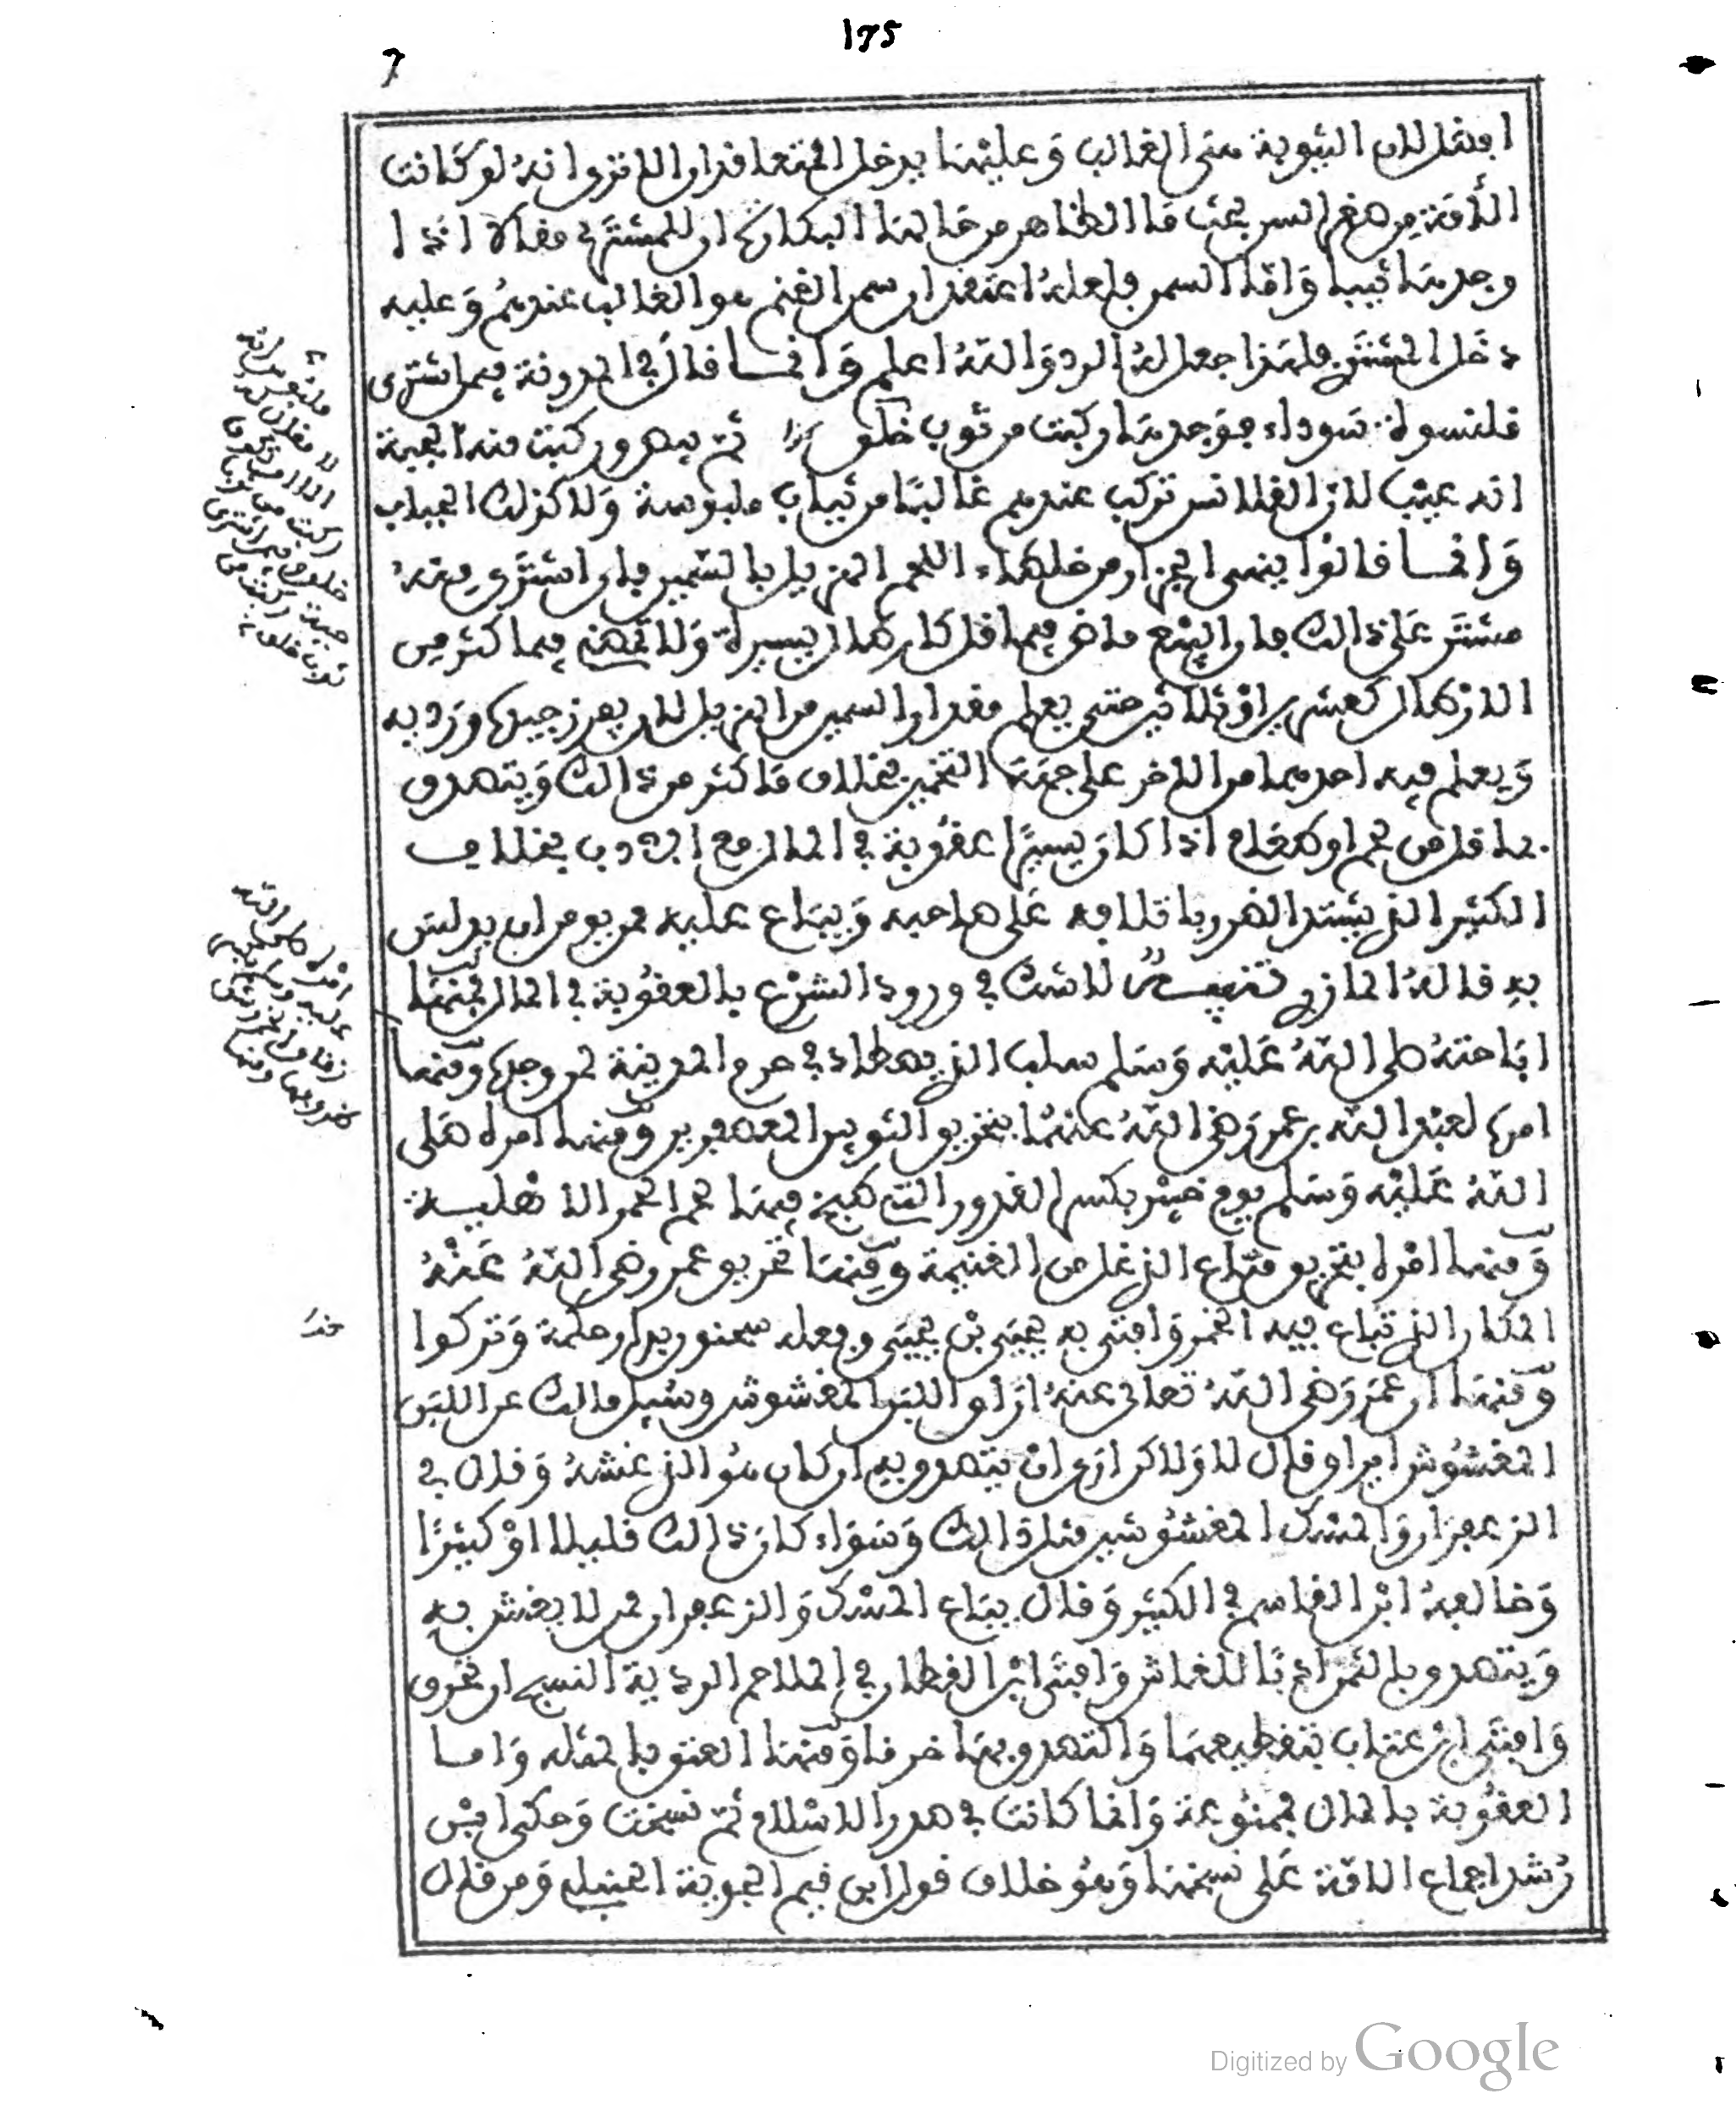 175
7
لان الثيوبة هي الغالب وعليها يدخل المتعاقدان الا تروا انه لو كانت
الأمة من صغر السن بحيث ما الظاهر من حالها البكارة ان للمشتري مقالا اذا
وجدها ثيبا وأما السمن فلعله اعتقد ان سمن الغنم هو الغالب عندهم وعليه
دخل المشتري فلهذا جعل له الرد والله اعلم وانما قال في المدونة فيمن اشترى
قلنسوة سوداء فوجدها ركبت من ثوب خلق كذا ثم وركبت منه الجبة
انه عيب لان القلانس تركب عندهم غالبا من ثياب ملبوسة ولا كذلك الجباب
وانما قالوا ينهى الجزار من خلط اللحم الهزيل بالسمين فان اشترى منه
مشتر على ذالك جاز البيع ماض فيما قل كارطال يسيرة ولا تمض فيما كثر من
الارطال كعشرين او ثلاثين حتى يعلم مقدار السمين من الهزيل
ويعلم فيه احدهما من الاخر على جهة التخمين بخلاف ما كثر من ذالك ويتصدق
بما قل من لحم او طعام اذا كان يسيرا عقوبة في المال مع الادب بخلاف
الكثير الذي يشتد الضرر باتلافه على صاحبه ويباع عليه ممن يومن ان يدلس
به قاله المازري تنبيه لا شك في ورود الشرع بالعقوبة في المال فمنها
اباحته صلى الله عليه وسلم سلب الذي يصطاد في حرم المدينة لمن وجده ومنها
امره لعبد الله بن عمر رضي الله عنهما بتحريق الثوبين المعصفرين ومنها امره صلى
الله عليه وسلم يوم خيبر بكسر القدور التي طبخ فيها لحم الحمر الاهلية
ومنها امره بتحريق متاع الذي غل من الغنيمة ومنها تحريق عمر رضي الله عنه
المكان الذي تباع فيه الخمر وافتى به يحيى بن يحيى وفعله سحنون بدار حكمة وتركوا
ومنها ان عمر رضي الله تعالى عنه اراق اللبن المغشوش وسئل مالك عن اللبن
المغشوش ايراق قال لا ولاكن ارى ان يتصدق به ان كان هو الذي غشه وقال في
الزعفران والمسك المغشوشين مثل ذالك وسواء كان ذالك قليلا او كثيرا
وخالفه ابن القاسم في الكثير وقال يباع المسك والزعفران ممن لا يغش به
ويتصدق بالثمن ادبا للغاش وافتى ابن القطان في الملاحم الردية النسج ان تحرق
وافتى ابن عتاب بتقطيعها والتصدق بها خرقا ومنها العتق بالمثلة واما
العقوبة بالمال فممنوعة وانما كانت في صدر الاسلام ثم نسخت وحكى ابن
رشد اجماع الامة على نسخها وهو خلاف قول ابن قيم الجوزية الحنبلي ومن قال